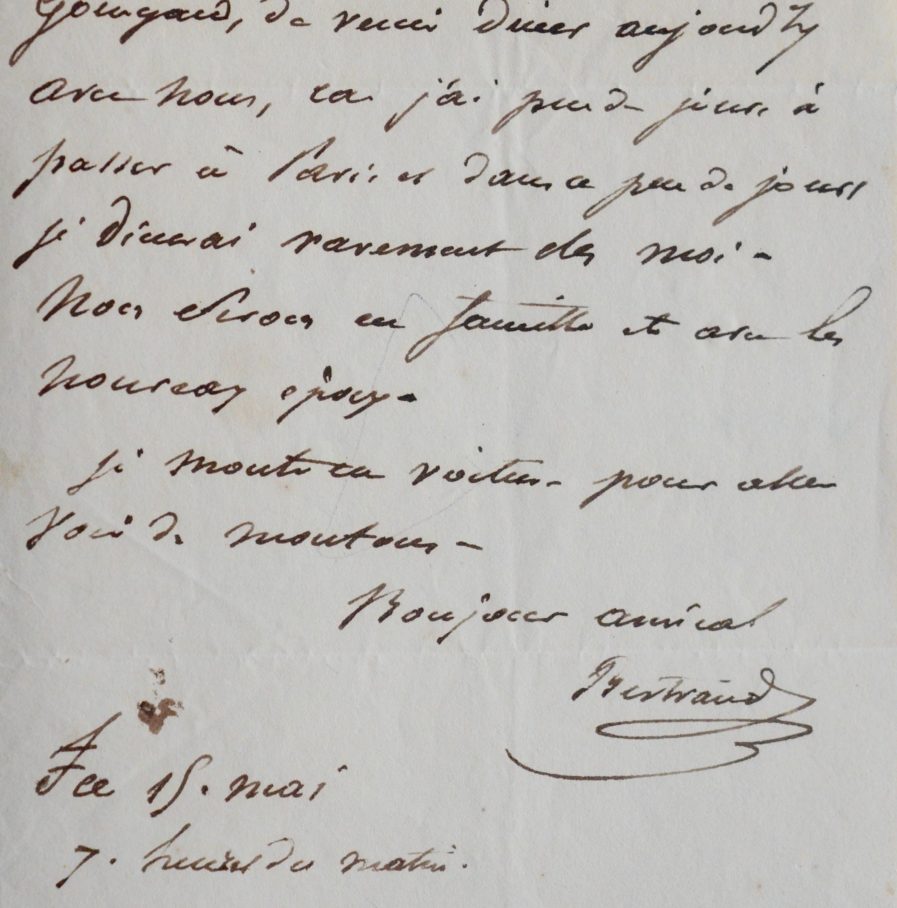 Gourgaud, de venir diner aujourd'hy
avec nous, car j'ai peu de jours à
passer à Paris et dans peu de jours
je dinerai rarement chez moi -
Nous serons en famille et avec les
nouveaux époux -
je monte en voiture pour aller
voir de moutons -
Bonjour amical
Bertrand
ce 15. mai
7. heures du matin.